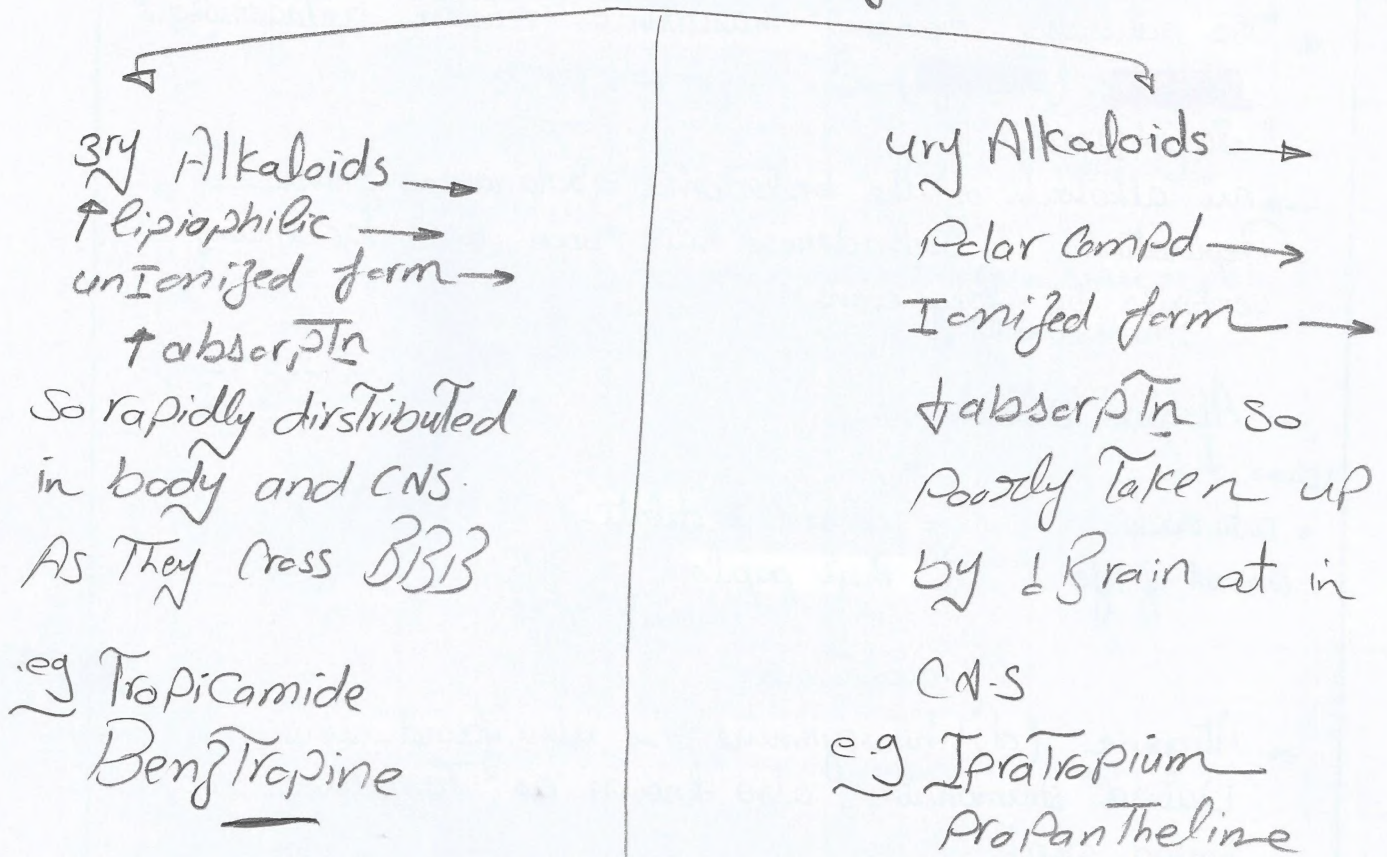 3ry Alkaloids →
↑ lipiophilic →
unIonized form →
↑ absorpTn
So rapidly dirsTribuTed
in body and CNS.
As They Cross BBB
.eg TropiCamide
BenzTropine
4ry Alkaloids →
Polar Compd →
Ionized form →
↓ absorpTn so
Poorly Taken up
by Brain at in
CNS
e.g IpraTropium
ProPanTheline